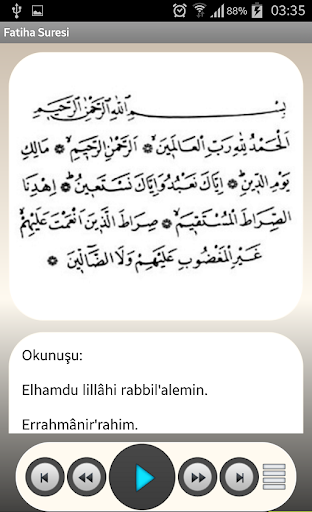 88% 03:35
Fatiha Suresi
بِسْمِ اللّٰهِ الرَّحْمٰنِ الرَّحِيمِ
اَلْحَمْدُ لِلّٰهِ رَبِّ الْعَالَمِينَ ❁ اَلرَّحْمٰنِ الرَّحِيمِ ❁ مَالِكِ
يَوْمِ الدِّينِ ❁ اِيَّاكَ نَعْبُدُ وَاِيَّاكَ نَسْتَعِينُ ❁ اِهْدِنَا
الصِّرَاطَ الْمُسْتَقِيمَ ❁ صِرَاطَ الَّذِينَ اَنْعَمْتَ عَلَيْهِمْ
غَيْرِ الْمَغْضُوبِ عَلَيْهِمْ وَلَا الضَّالِّينَ ❁
Okunuşu:
Elhamdu lillâhi rabbil'alemin.
Errahmânir'rahim.